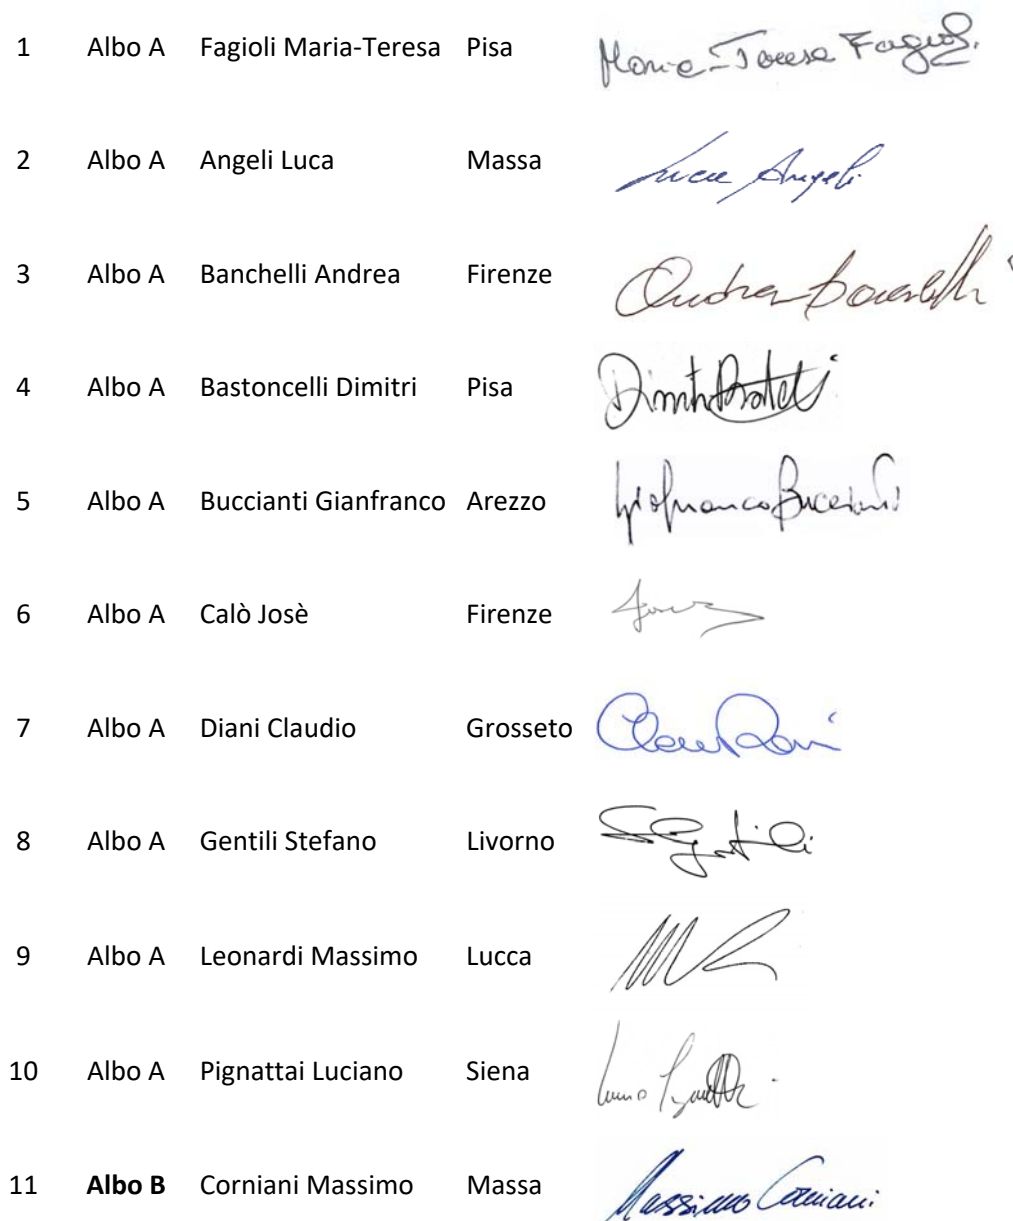 1 Albo A Fagioli Maria-Teresa Pisa Maria-Teresa Fagioli
2 Albo A Angeli Luca Massa Luca Angeli
3 Albo A Banchelli Andrea Firenze Andrea Banchelli
4 Albo A Bastoncelli Dimitri Pisa
5 Albo A Buccianti Gianfranco Arezzo Gianfranco Buccianti
6 Albo A Calò Josè Firenze
7 Albo A Diani Claudio Grosseto
8 Albo A Gentili Stefano Livorno
9 Albo A Leonardi Massimo Lucca
10 Albo A Pignattai Luciano Siena
11 Albo B Corniani Massimo Massa Massimo Corniani